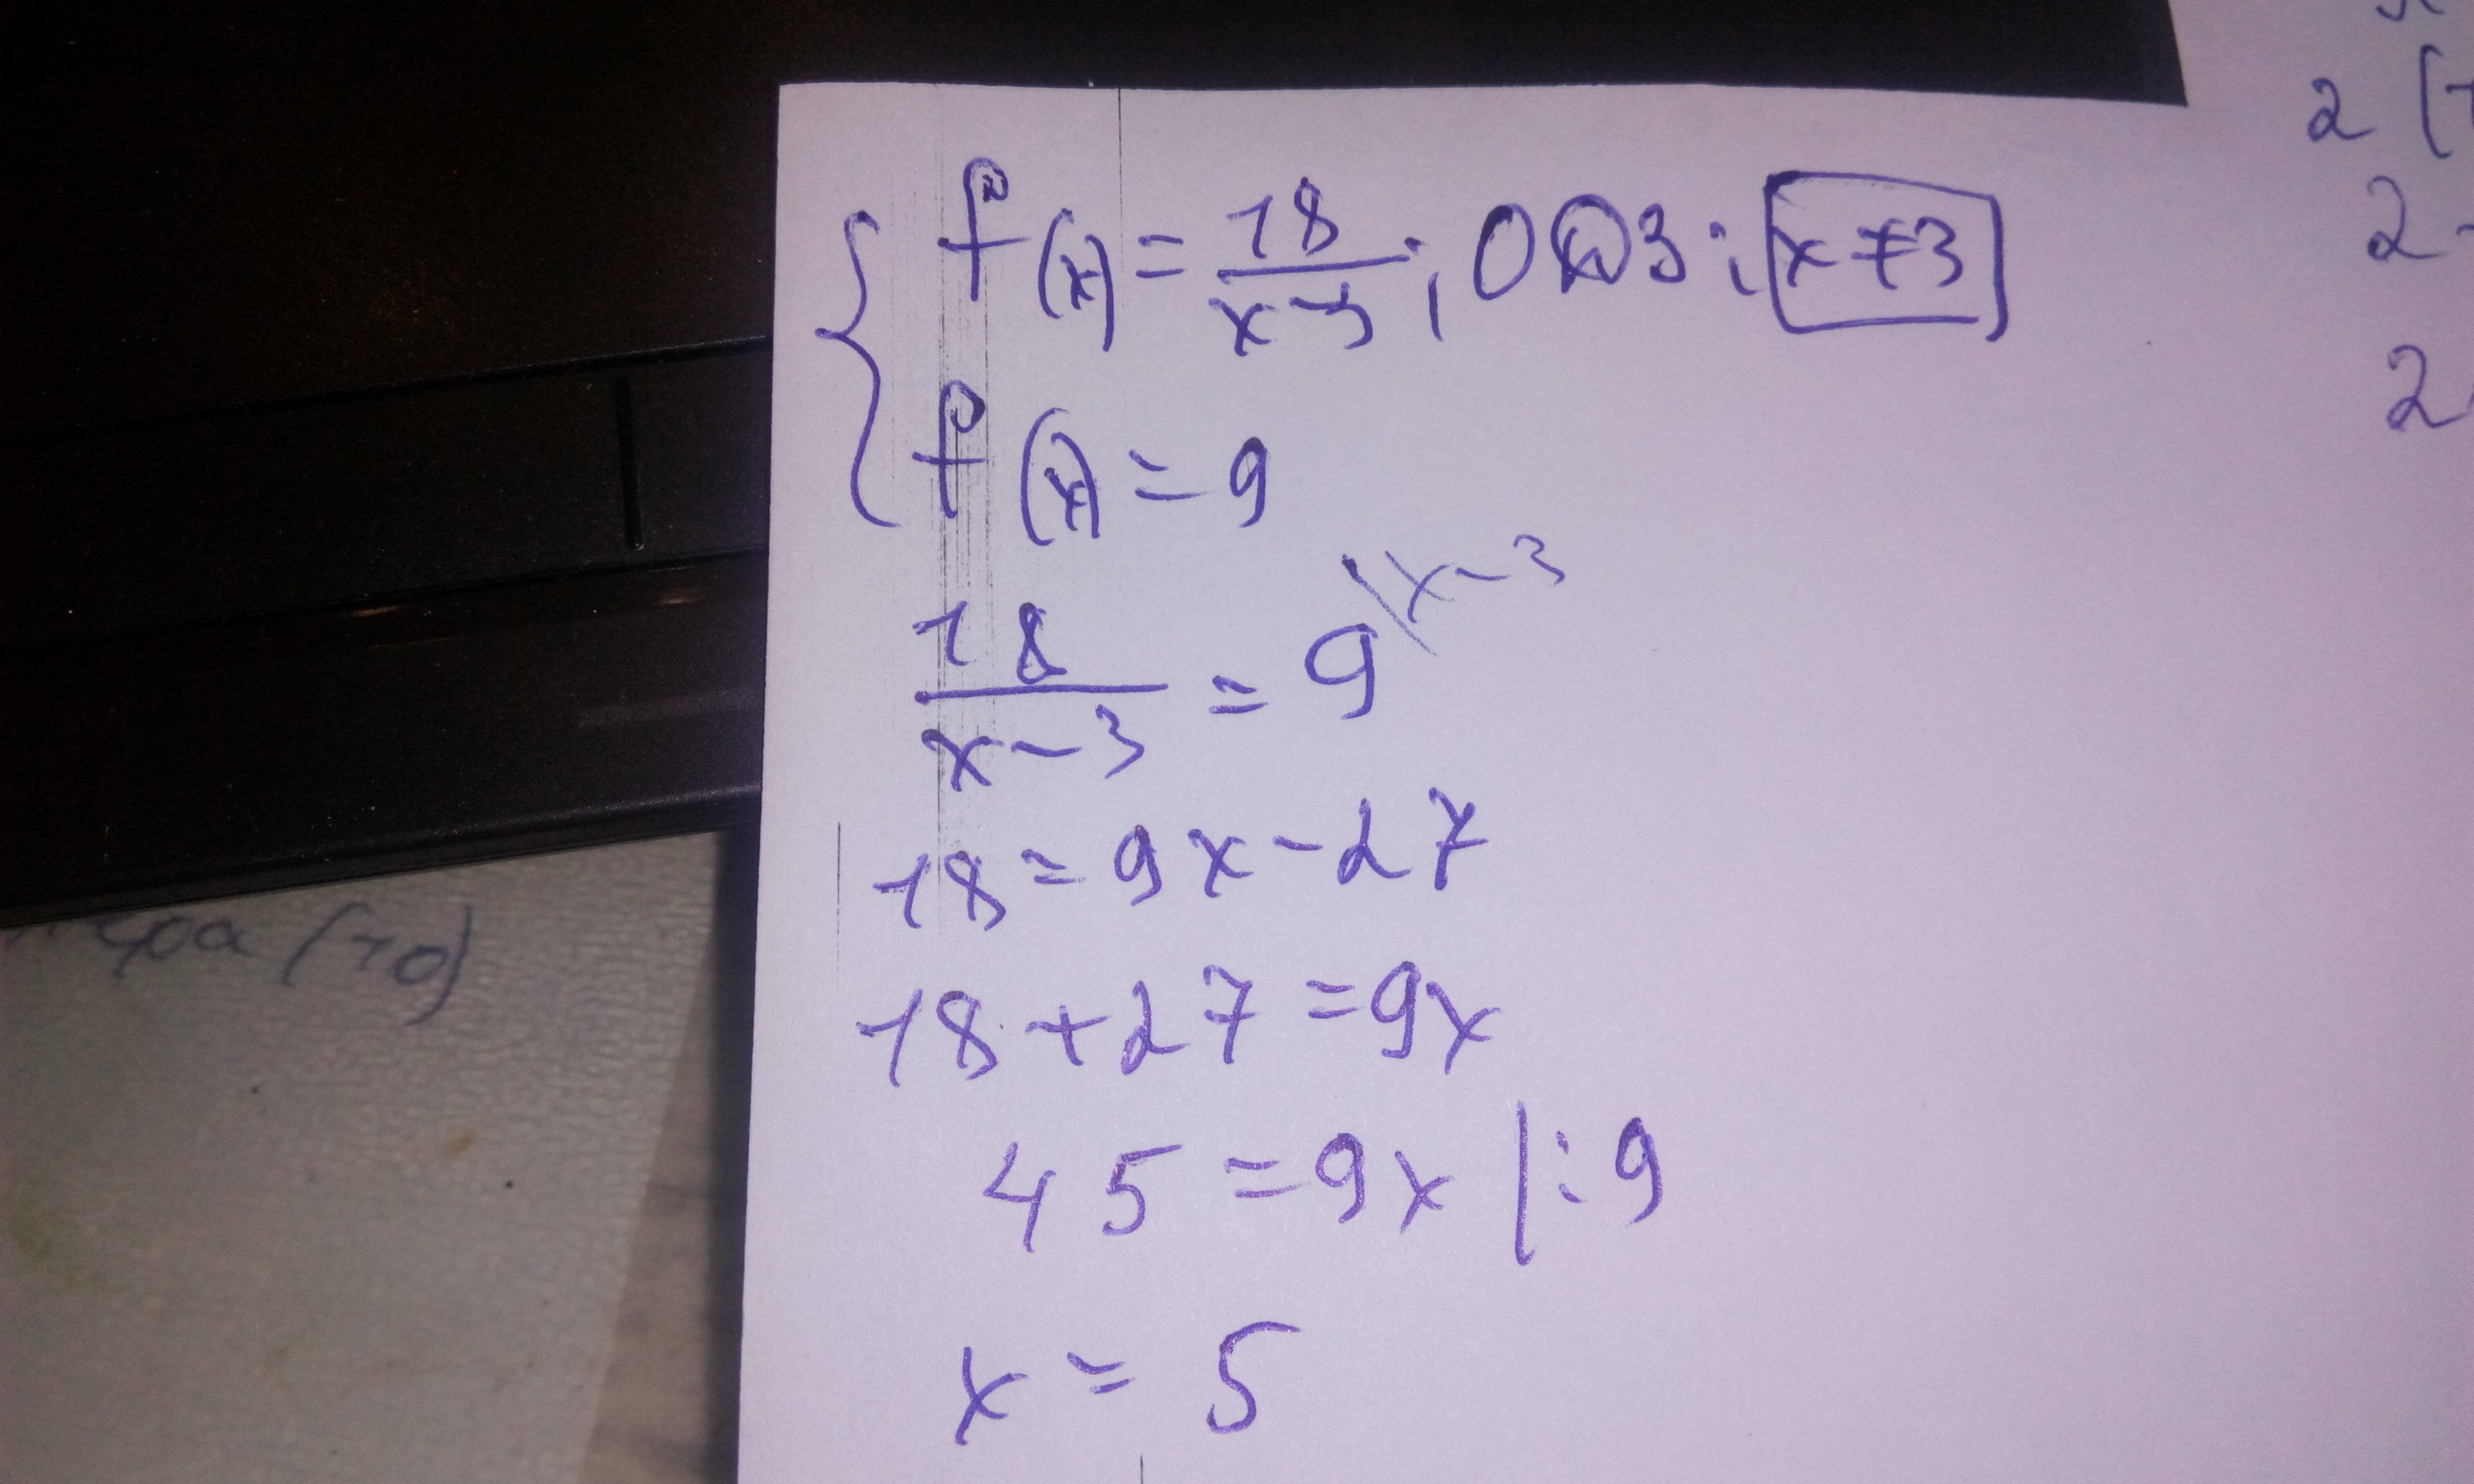 { f(x) = 18/(x-3); ОДЗ: x≠3
f(x) = 9
18/(x-3) = 9 \x-3
18 = 9x - 27
18 + 27 = 9x
45 = 9x |:9
x = 5
(70)
2 (
2
2